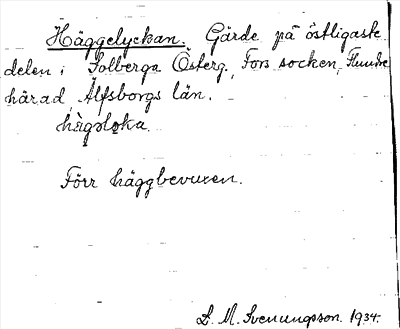 Häggelyckan. Gärde på östligaste
delen i Solberga Österg., Fors socken, Flundre
härad, Älfsborgs län.
hàgəløka
Förr häggbevuxen.
D. M. Svenungsson. 1934.